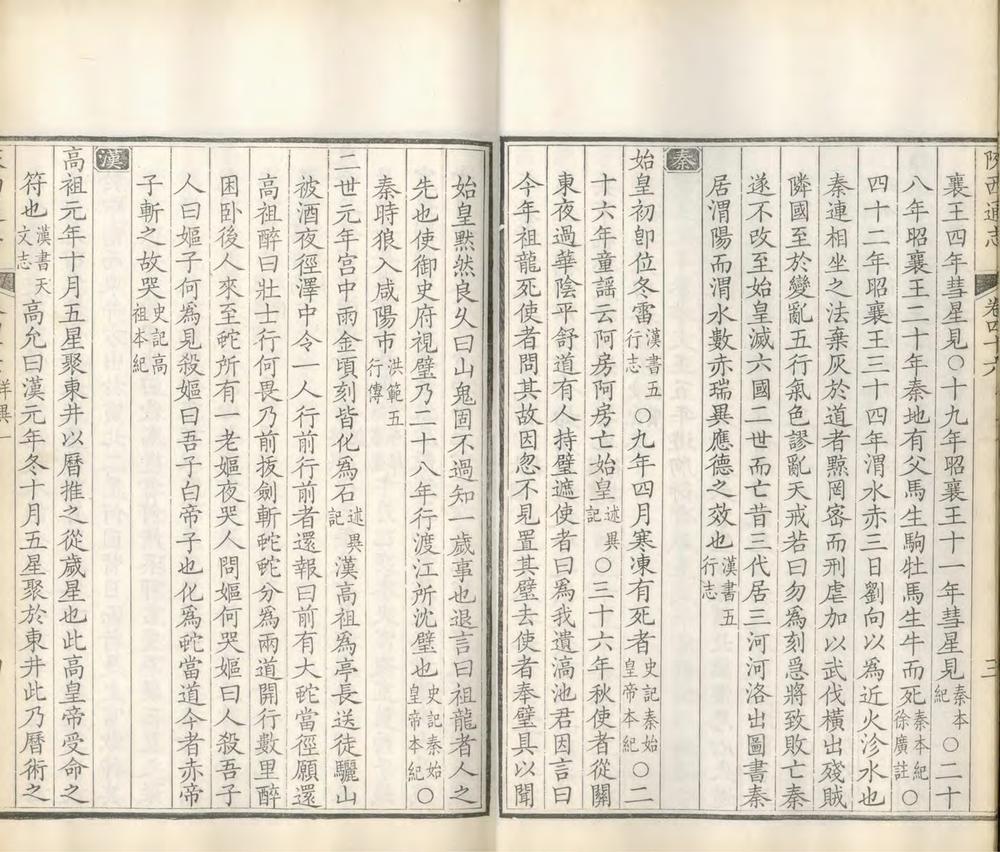 陝西通志
卷四十六
三
襄王四年彗星見○十九年昭襄王十一年彗星見秦本紀○二十
八年昭襄王二十年秦地有父馬生駒牡馬生牛而死秦本紀徐廣註○
四十二年昭襄王三十四年渭水赤三日劉向以爲近火沴水也
秦連相坐之法棄灰於道者黥罔宻而刑虐加以武伐橫出殘賊
隣國至於變亂五行氣色謬亂天戒若曰勿爲刻急將致敗亡秦
遂不改至始皇滅六國二世而亡昔三代居三河河洛出圖書秦
居渭陽而渭水數赤瑞異應德之效也漢書五行志
秦
始皇初卽位冬雷漢書五行志○九年四月寒凍有死者史記秦始皇帝本紀○二
十六年童謡云阿房阿房亡始皇述異記○三十六年秋使者從關
東夜過華陰平舒道有人持璧遮使者曰爲我遺滈池君因言曰
今年祖龍死使者問其故因忽不見置其璧去使者奉璧具以聞
始皇黙然良乆曰山鬼固不過知一歲事也退言曰祖龍者人之
先也使御史府視璧乃二十八年行渡江所沈璧也史記秦始皇帝本紀○
秦時狼入咸陽市洪範五行傳
二世元年宫中雨金頃刻皆化為石述異記漢高祖爲亭長送徒驪山
被酒夜徑澤中令一人行前行前者還報曰前有大虵當徑願還
高祖醉曰壯士行何畏乃前拔劍斬虵虵分爲兩道開行數里醉
困卧後人來至虵所有一老嫗夜哭人問嫗何哭嫗曰人殺吾子
人曰嫗子何爲見殺嫗曰吾子白帝子也化爲虵當道今者赤帝
子斬之故哭史記高祖本紀
漢
高祖元年十月五星聚東井以曆推之從歲星也此高皇帝受命之
符也漢書天文志高允曰漢元年冬十月五星聚於東井此乃曆術之
祥異一